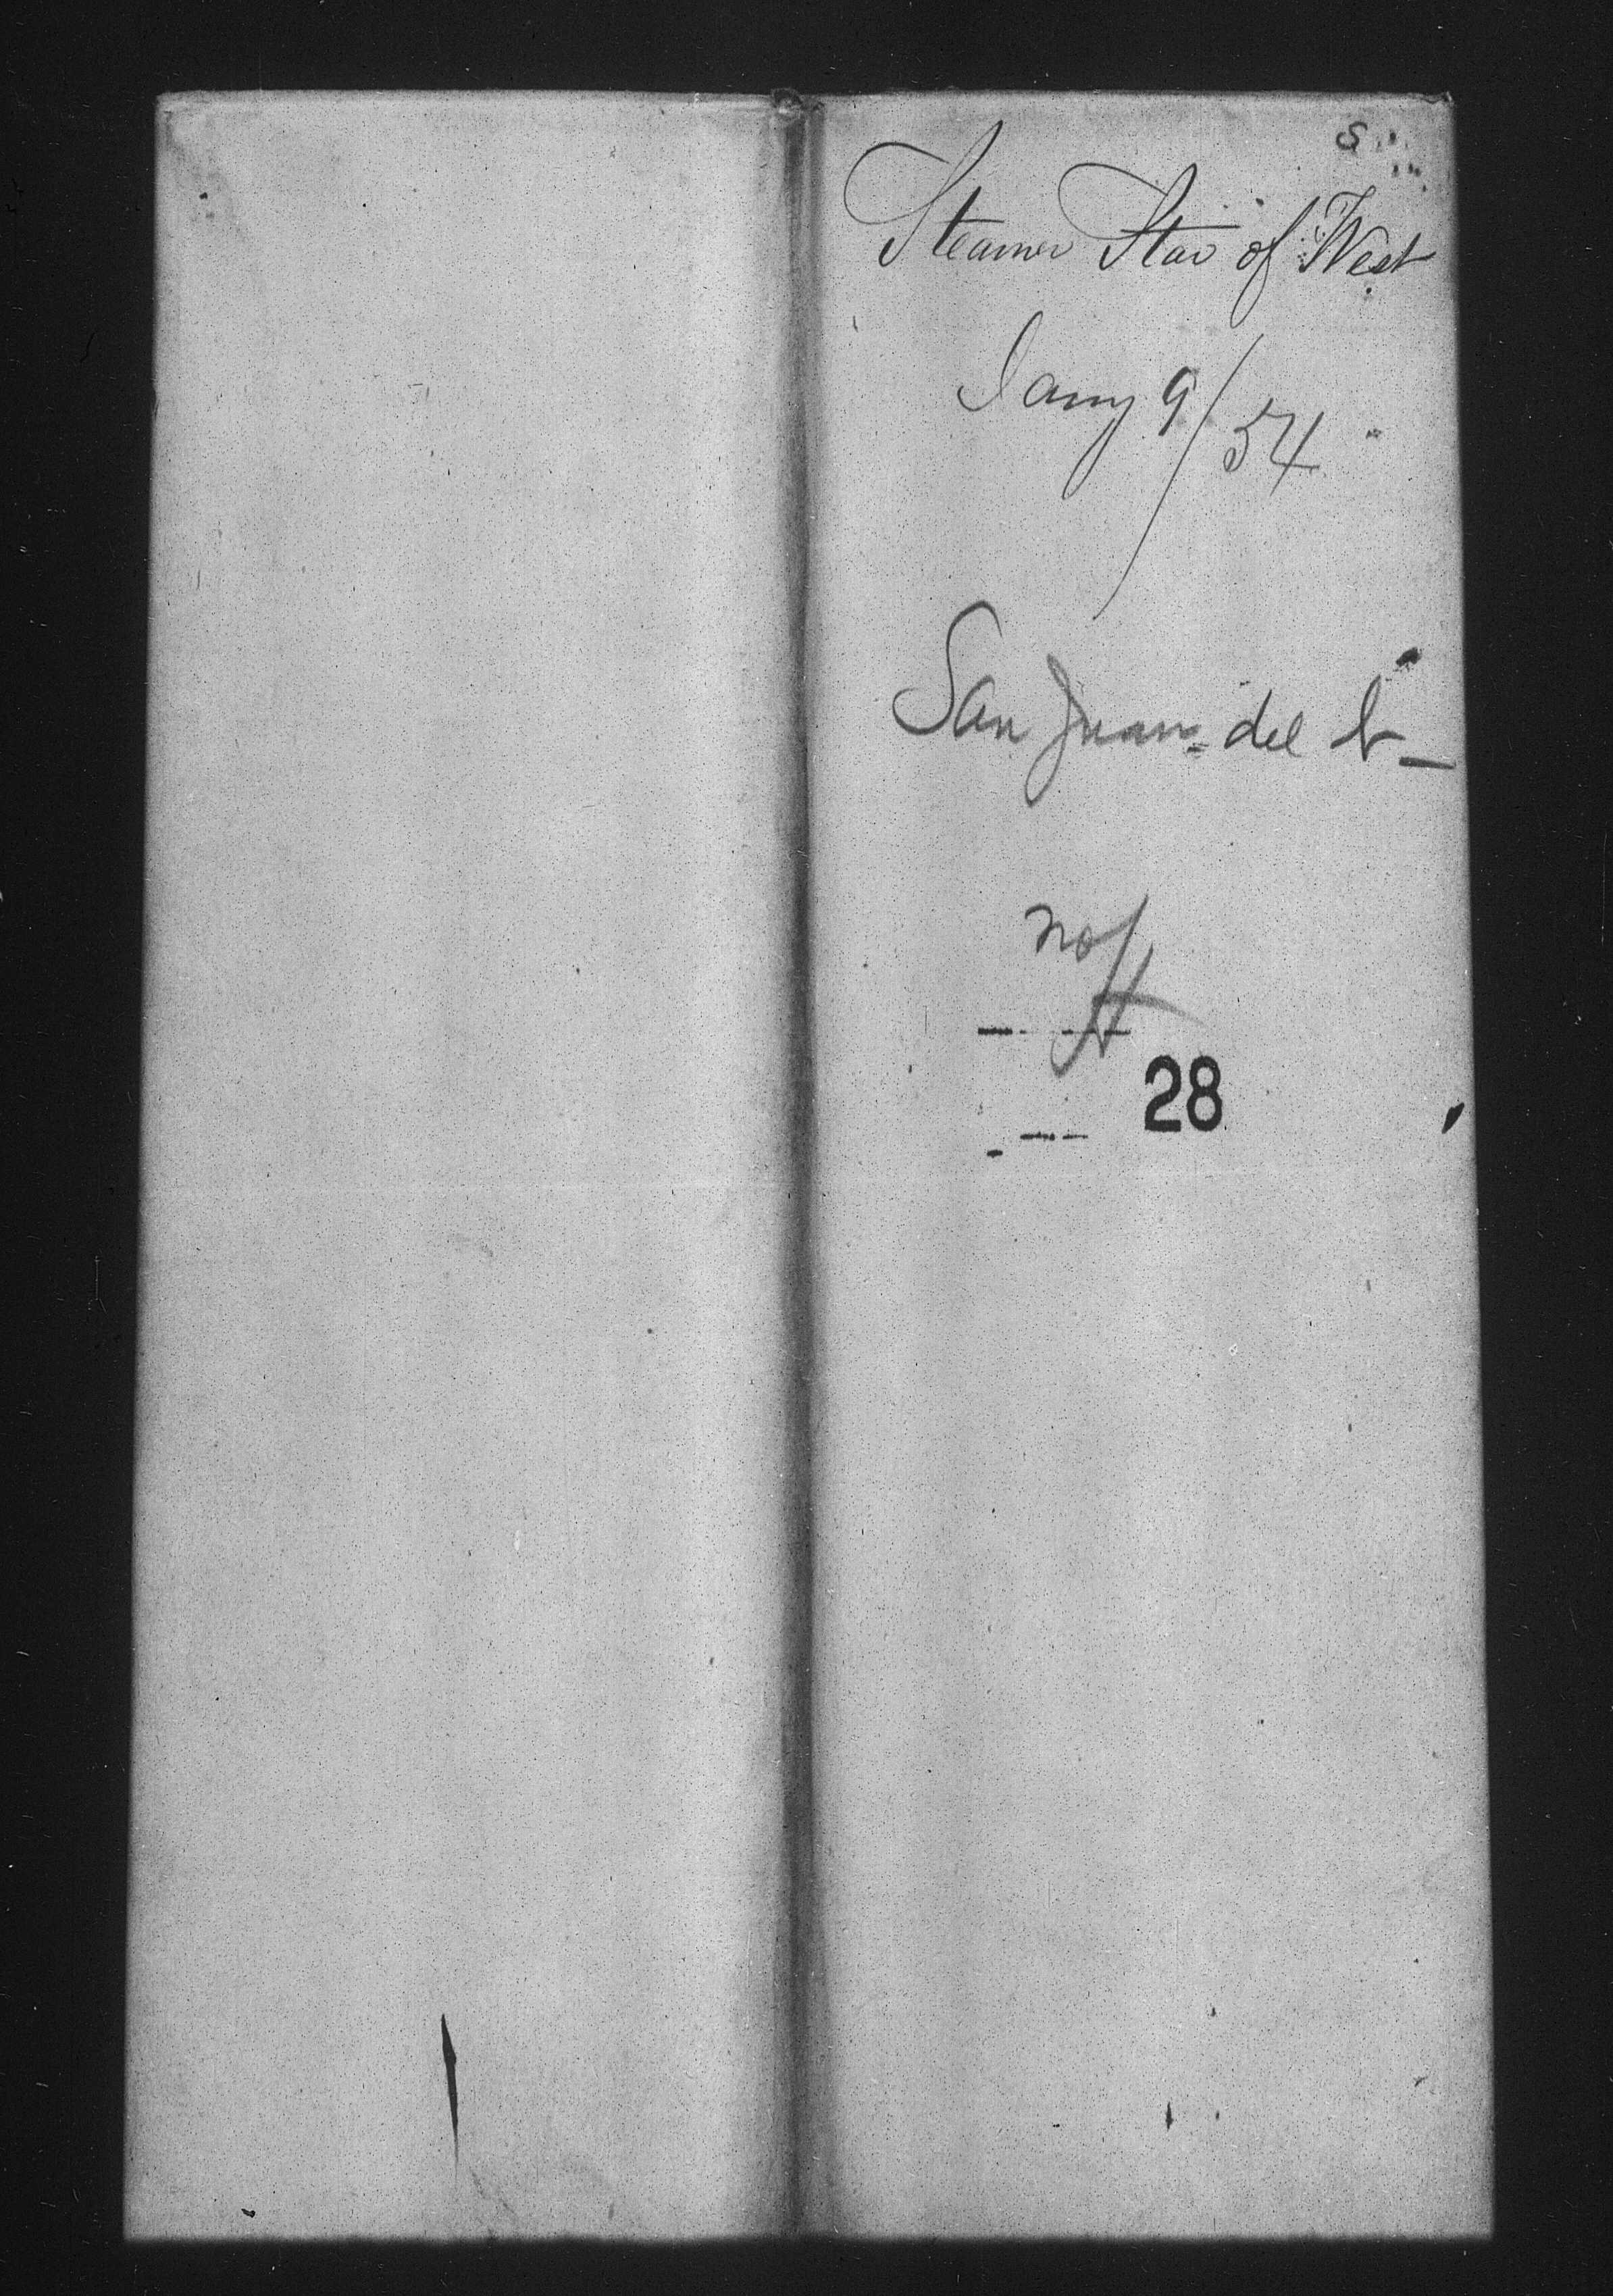 S
Steamer Star of West
Jany 9/54
San Juan del N
no/
28